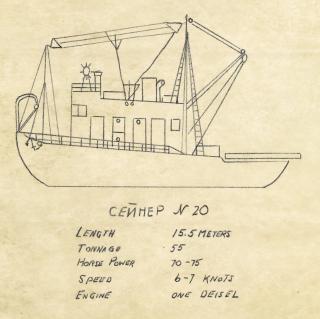 СЕЙНЕР N 20
LENGTH 15.5 METERS
TONNAGE 55
HORSE POWER 70-75
SPEED 6-7 KNOTS
ENGINE ONE DEISEL